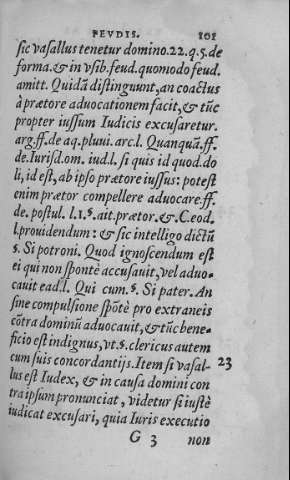 FEVDIS. 101
sic vasallus tenetur domino. 22. q. 5. de
forma. & in vsib. feud. quomodo feud.
amitt. Quidã distinguunt, an coactus
à prætore aduocationem facit, & tũc
propter iussum Iudicis excusaretur.
arg. ff. de aq. pluui. arc. l. Quanquã. ff.
de. Iurisd. om. iud. l. si quis id quod. do
li, id est, ab ipso prætore iussus: potest
enim prætor compellere aduocare. ff.
de. postul. l. 1. §. ait. prætor. &. C. eod.
l. prouidendum: & sic intelligo dictũ
§. Si potroni. Quod ignoscendum est
ei qui non spontè accusauit, vel aduo-
cauit ead. l. Qui cum. §. Si pater. An
sine compulsione spõtè pro extraneis
cõtra dominũ aduocauit, & tũc bene-
ficio est indignus, vt. §. clericus autem
cum suis concordantijs. Item si vasal- 23
lus est Iudex, & in causa domini con
tra ipsum pronunciat, videtur si iustè
iudicat excusari, quia Iuris executio
G 3 non